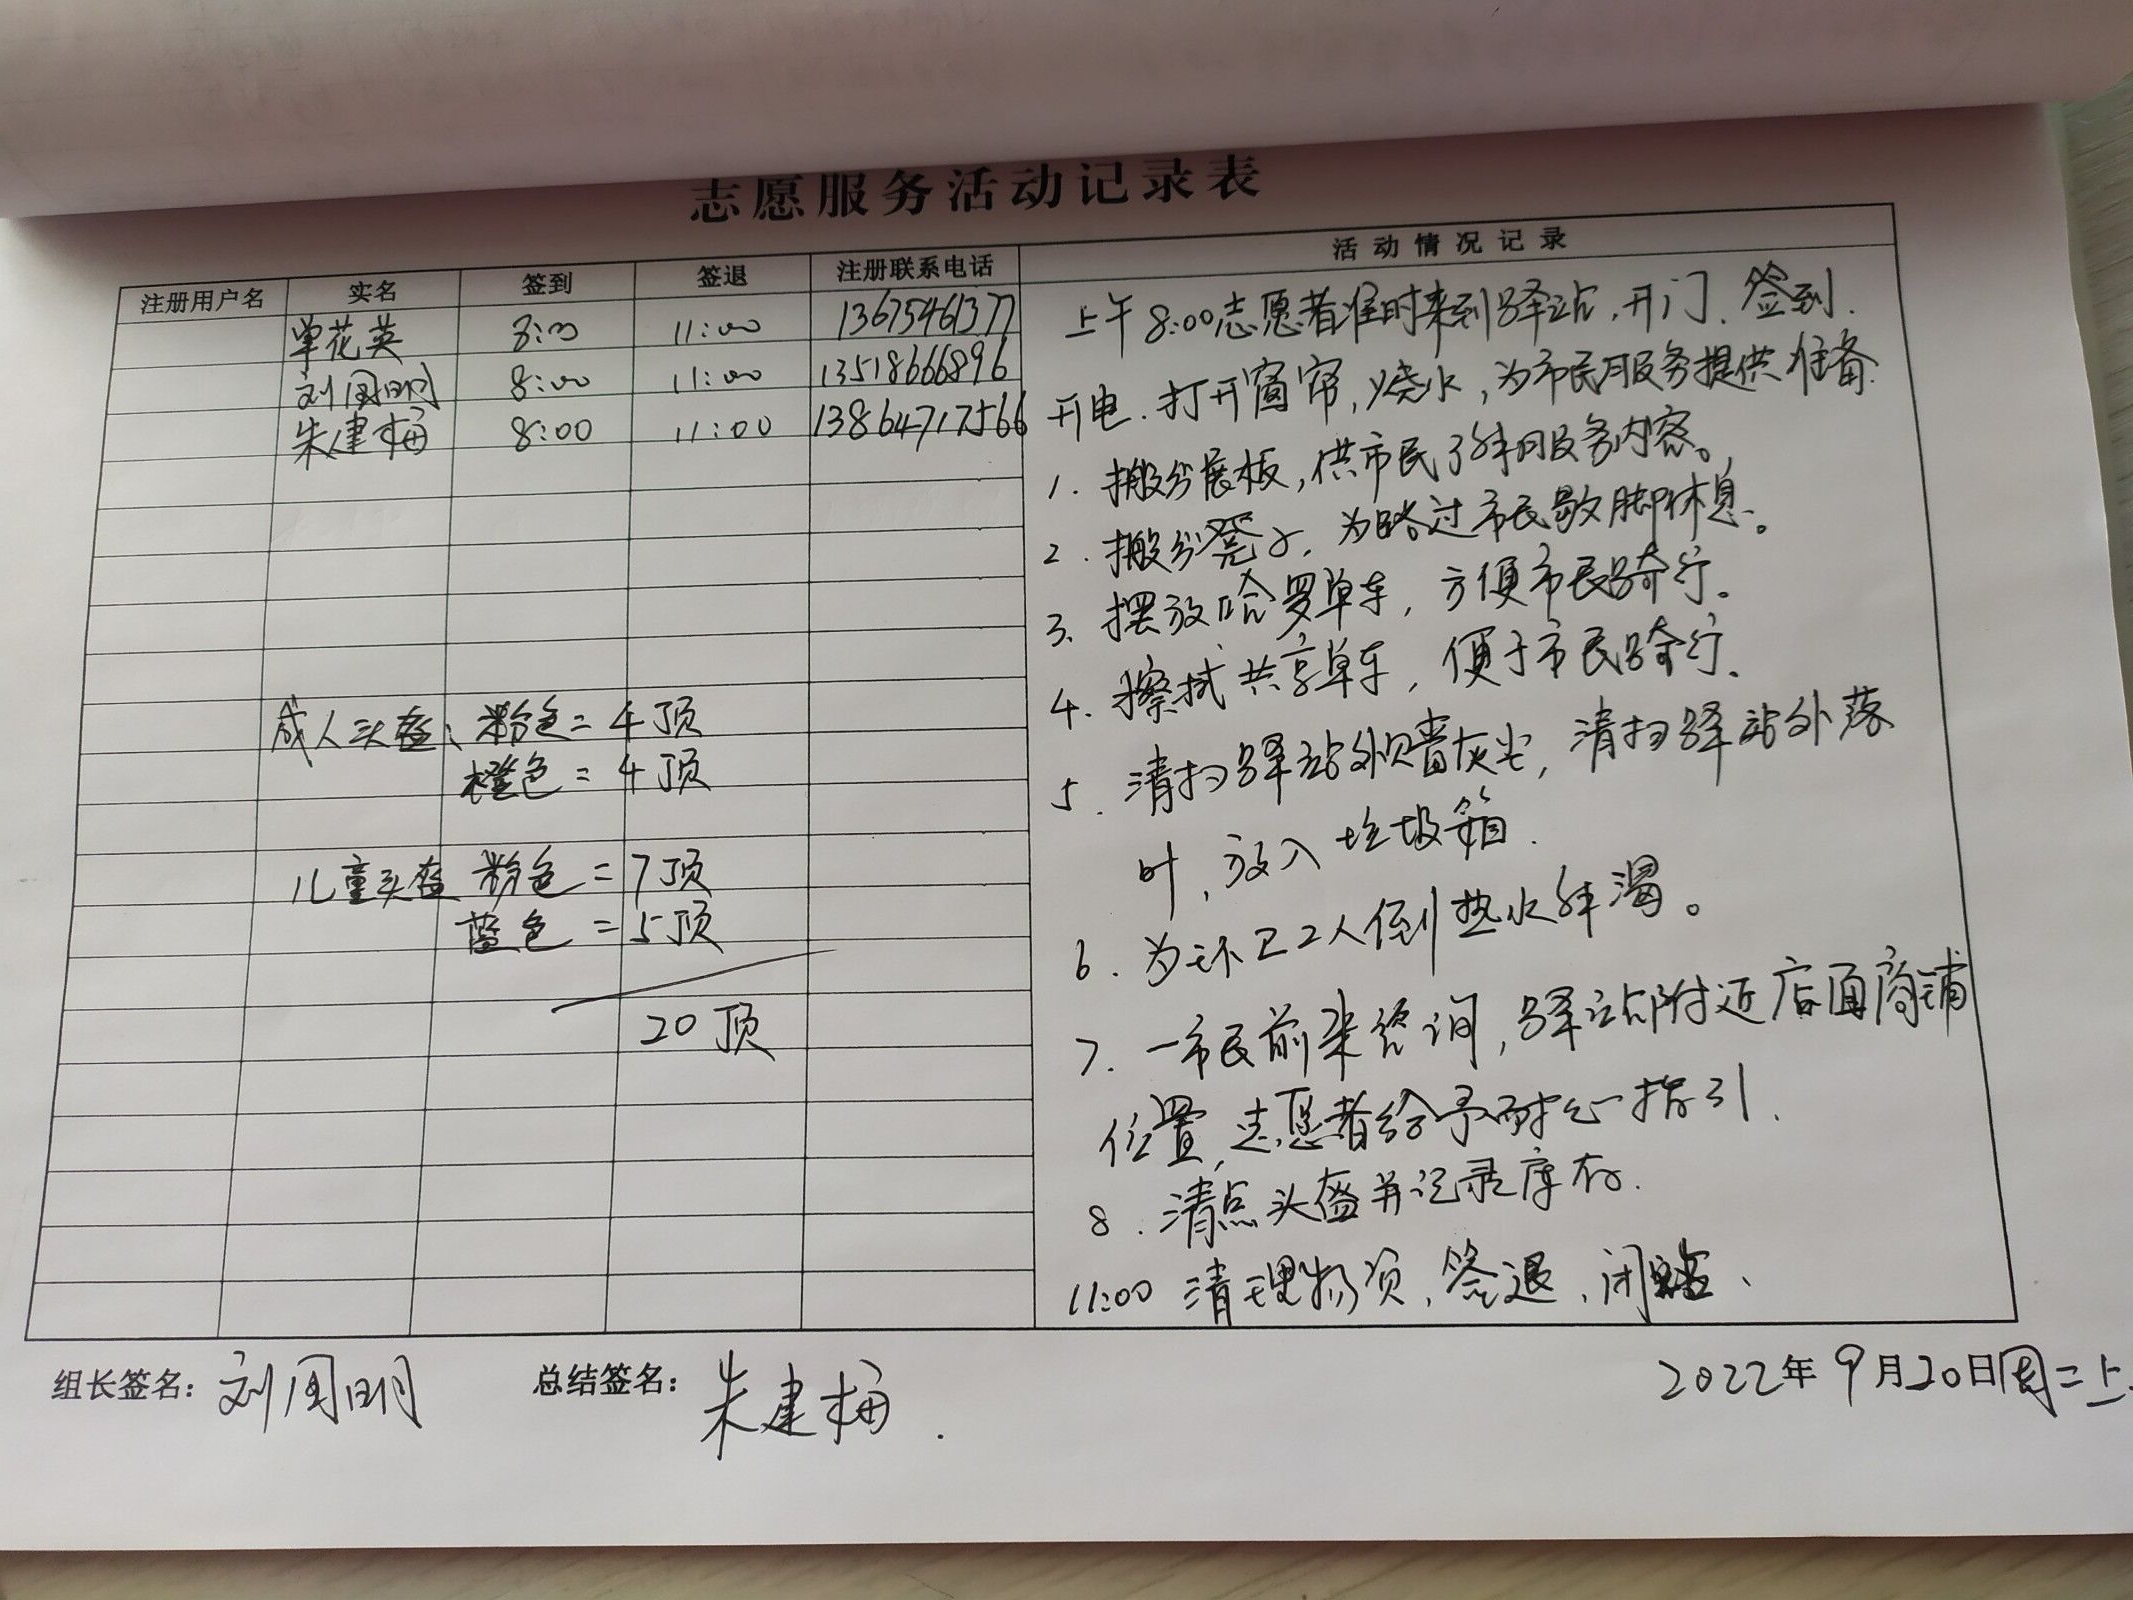 志愿服务活动记录表
注册用户名 实名 签到 签退 注册联系电话 活动情况记录
单花英 8:00 11:00 13675461377
刘国明 8:00 11:00 13518666896
朱建梅 8:00 11:00 13864717566
成人头盔、粉色=4顶
橙色=4顶
儿童头盔 粉色=7顶
蓝色=5顶
20顶
上午8:00志愿者准时来到驿站,开门、签到.
开电.打开窗帘,烧水,为市民服务提供准备.
1.搬出展板,供市民了解服务内容。
2.搬出凳子,为路过市民歇脚休息。
3.摆放哈罗单车,方便市民骑行。
4.擦拭共享单车,便于市民骑行.
5.清扫驿站外墙灰尘,清扫驿站外落
叶,放入垃圾箱.
6.为环卫工人倒热水解渴。
7.一市民前来咨询,驿站附近店面商铺
位置,志愿者给予耐心指引.
8.清点头盔并记录库存.
11:00清理物项,签退,闭站、
组长签名:刘国明 总结签名:朱建梅. 2022年9月20日周二上